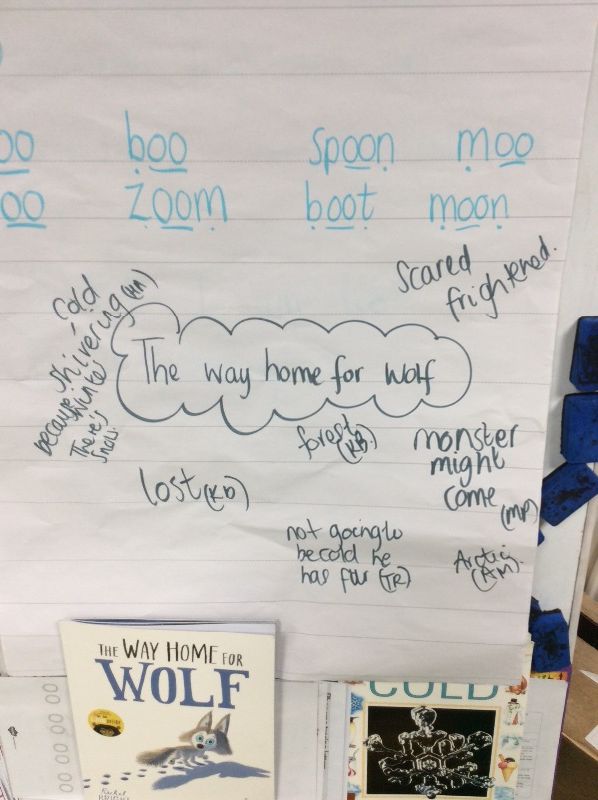 oo boo spoon moo
oo zoom boot moon
scared
frightened.
cold
shivering
because
There's
snow.
The way home for Wolf
forest
(KB.)
monster
might
come
(MP)
lost (KD)
not going to
be cold he
has fur (TR)
Arctic
(AM).
THE WAY HOME FOR
WOLF
Rachel
BRIGHT
COLD